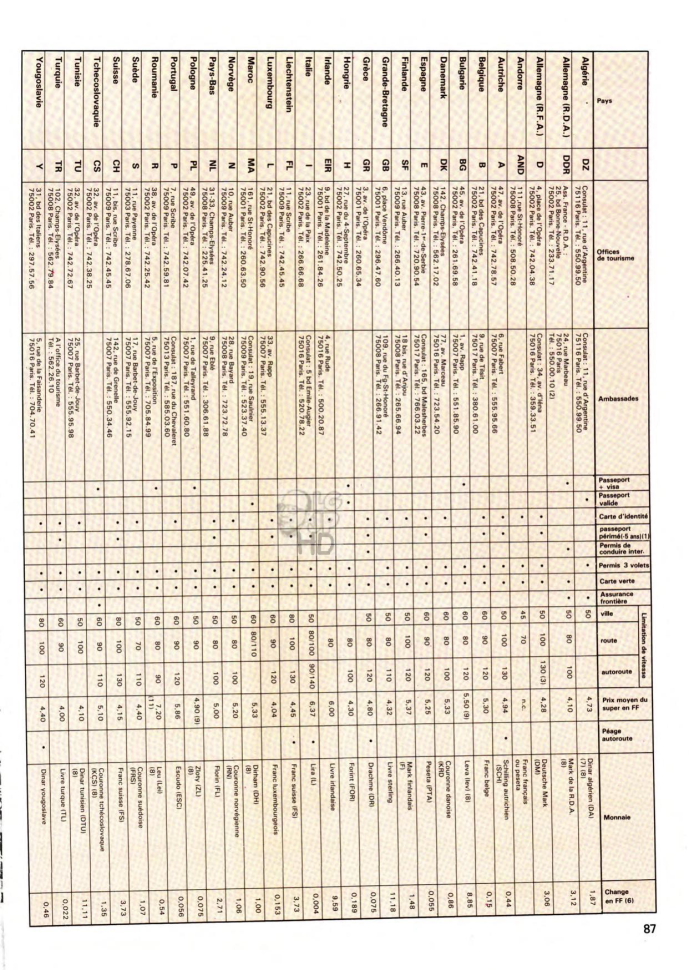 Pays
Offices de tourisme
Ambassades
Passeport + visa
Passeport valide
Carte d'identité
passeport périmé(-5 ans)(1)
Permis de conduire inter.
Permis 3 volets
Carte verte
Assurance frontière
Limitation de vitesse
ville
route
autoroute
Prix moyen du super en FF
Péage autoroute
Monnaie
Change en FF (6)
Algérie DZ
Consulat : 11, rue d'Argentine
75116 Paris. Tél. : 550.99.50
Consulat : 11, rue d'Argentine
75116 Paris. Tél. : 550.99.50
50 4,73 Dinar algérien (DA) (7) (8) 1,87
Allemagne (R.D.A.) DDR
Ass. France - R.D.A.
25, bd Bonne-Nouvelle
75002 Paris. Tél. : 233.71.17
24, rue Marbeau
75016 Paris
Tél. : 550.00.10 (2)
50 80 100 4,10 Mark de la R.D.A. (8) 3,12
Allemagne (R.F.A.) D
4, place de l'Opéra
75002 Paris. Tél. : 742.04.38
Consulat : 34, av. d'Iéna
75016 Paris. Tél. : 359.33.51
50 100 130 (3) 4,28 Deutsche Mark (DM) 3,06
Andorre AND
111, rue St-Honoré
75008 Paris. Tél. : 508.50.28
45 70 n.c. Franc français ou peseta
Autriche A
47, av. de l'Opéra
75002 Paris. Tél. : 742.78.57
6, rue Fabert
75007 Paris. Tél. : 555.95.66
50 100 130 4,94 Schilling autrichien (SCH) 0,44
Belgique B
21, bd des Capucines
75002 Paris. Tél. : 742.41.18
9, rue de Tilsit
75017 Paris. Tél. : 380.61.00
60 90 120 5,30 Franc belge 0,15
Bulgarie BG
45, av. de l'Opéra
75002 Paris. Tél. : 261.69.58
1, av. Rapp
75007 Paris. Tél. : 551.85.90
60 80 120 5,50 (9) Leva (lev) (8) 8,85
Danemark DK
142, Champs-Elysées
75008 Paris. Tél. : 562.17.02
77, av. Marceau
75016 Paris. Tél. : 723.54.20
60 80 100 5,33 Couronne danoise (KRD 0,86
Espagne E
43, av. Pierre-1er-de-Serbie
75008 Paris. Tél. : 720.90.54
Consulat : 165, bd Malesherbes
75017 Paris. Tél. : 766.03.22
60 90 120 5,25 Peseta (PTA) 0,055
Finlande SF
13, rue Auber
75009 Paris. Tél. : 266.40.13
18 bis, rue d'Anjou
75008 Paris. Tél. : 265.66.94
50 100 120 5,37 Mark finlandais (F) 1,48
Grande-Bretagne GB
6, place Vendôme
75001 Paris. Tél. : 296.47.60
109, rue du Fg-St-Honoré
75008 Paris. Tél. : 266.91.42
80 110 4,32 Livre sterling 11,18
Grèce GR
3, av. de l'Opéra
75001 Paris. Tél. : 260.65.34
50 80 120 4,80 Drachme (DR) 0,075
Hongrie H
27, rue du 4-Septembre
75002 Paris. Tél. : 742.50.25
80 100 4,30 Forint (FOR) 0,189
Irlande EIR
9, bd de la Madeleine
75001 Paris. Tél. : 261.84.26
4, rue Rude
75016 Paris. Tél. : 500.20.87
80 6,00 Livre irlandaise 9,59
Italie I
23, rue de la Paix
75002 Paris. Tél. : 266.66.68
Consulat : 17, bd Emile-Augier
75016 Paris. Tél. : 520.78.22
50 80/100 90/140 6,37 Lira (L) 0,004
Liechtenstein FL
11, rue Scribe
75009 Paris. Tél. : 742.45.45
80 100 130 4,45 Franc suisse (FS) 3,73
Luxembourg L
21, bd des Capucines
75002 Paris. Tél. : 742.90.56
33, av. Rapp
75007 Paris. Tél. : 555.13.37
60 90 120 4,04 Franc luxembourgeois 0,153
Maroc MA
161, rue St-Honoré
75001 Paris. Tél. : 260.63.50
Consulat : 19, rue Saulnier
75009 Paris. Tél. : 523.37.40
60 80/110 5,33 Dirham (DH) (8) 1,00
Norvège N
10, rue Auber
75009 Paris. Tél. : 742.24.12
28, rue Bayard
75008 Paris. Tél. : 723.72.78
50 80 100 5,20 Couronne norvégienne (RN) 1,06
Pays-Bas NL
31-33, Champs-Elysées
75008 Paris. Tél. : 225.41.25
9, rue Eblé
75007 Paris. Tél. : 306.61.88
50 80 100 5,00 Florin (FL) 2,71
Pologne PL
49, av. de l'Opéra
75002 Paris. Tél. : 742.07.42
1, rue de Talleyrand
75007 Paris. Tél. : 551.60.80
50 90 4,90 (9) Zloty (ZL) (8) 0,075
Portugal P
7, rue Scribe
75009 Paris. Tél. : 742.59.81
Consulat : 187, rue du Chevaleret
75013 Paris. Tél. : 585.03.60
60 90 120 5,86 Escudo (ESC) 0,056
Roumanie R
38, av. de l'Opéra
75002 Paris. Tél. : 742.25.42
5, rue de l'Exposition
75007 Paris. Tél. : 705.84.99
60 80 90 7,20 (11) Leu (Lei) (8) 0,54
Suède S
11, rue Payenne
75003 Paris. Tél. : 278.67.06
17, rue Barbet-de-Jouy
75007 Paris. Tél. : 555.92.15
50 70 110 4,40 Couronne suédoise (FRS) 1,07
Suisse CH
11, bis, rue Scribe
75009 Paris. Tél. : 742.45.45
142, rue de Grenelle
75007 Paris. Tél. : 550.34.46
80 100 130 4,15 Franc suisse (FS) 3,73
Tchecoslovaquie CS
32, av. de l'Opéra
75002 Paris. Tél. : 742.38.25
25
60 90 110 5,10 Couronne tchécoslovaque (KCS) (8) 1,35
Tunisie TU
32, av. de l'Opéra
75002 Paris. Tél. : 742.72.67
25, rue Barbet-de-Jouy
75007 Paris. Tél. : 555.95.98
50 100 4,10 Dinar tunisien (DTU) (8) 11,11
Turquie TR
102, Champs-Elysées
75008 Paris. Tél. : 562.79.84
A l'office du tourisme
Tél. : 562.26.10
60 90 4,00 Livre turque (TL) 0,022
Yougoslavie Y
31, bd des Italiens
75002 Paris. Tél. : 297.57.56
5, rue de la Faisanderie
75016 Paris. Tél. : 704.70.41
80 100 120 4,40 Dinar yougoslave 0,46
87